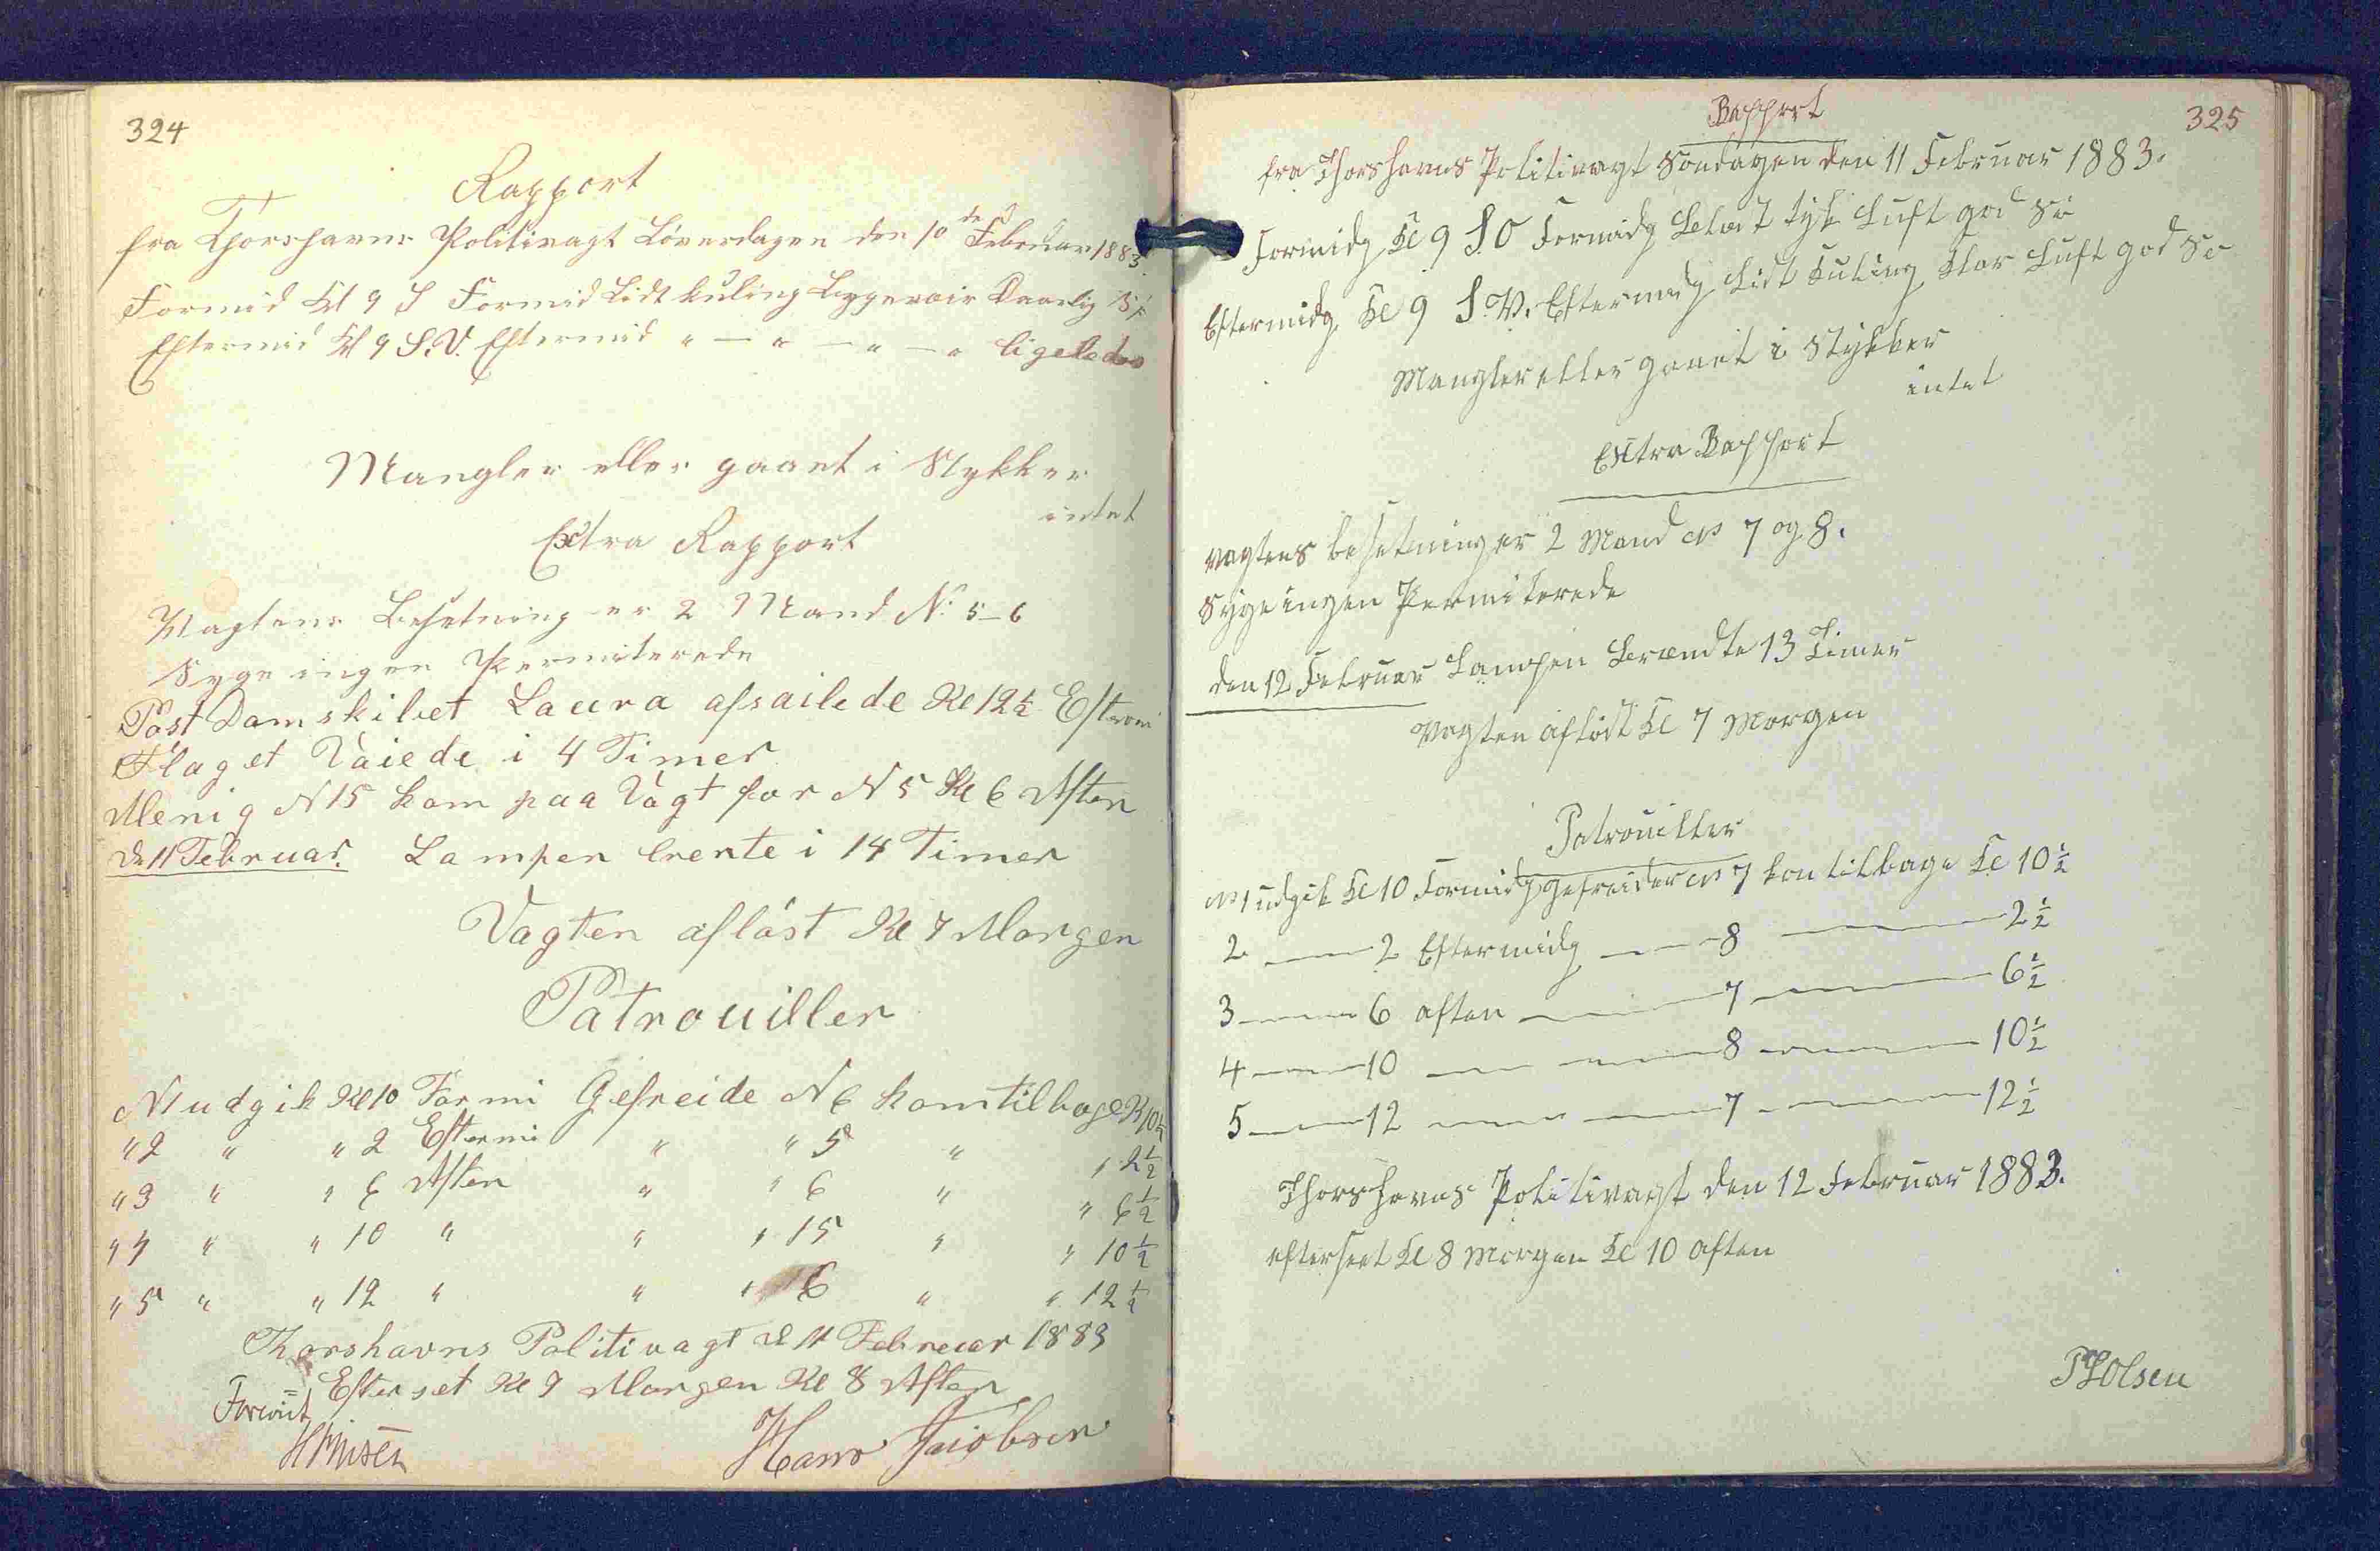 324
Rapport
fra Thorshavns Politivagt Löverdagen den 10de Februar 1883.
Formid Kl 9 S Formid Lidt kuling Byge Daarlig Sö
Eftermid Kl 9 S.V. Eftermid " — " — " — " ligeledes
Mangler eller gaaet i Stykker
intet
Extra Rapport
Vagtens Besetning er 2 Mand No 5-6
Syge ingen Permiterede
Post Damskibet Laura afsailede Kl 12½ Efterm
Flaget Vaiede i 4 Timer
Menig N 15 kom paa Vagt for N 5 Kl 6 Aften
D 11 Februar. Lampen brente i 14 Timer
Vagten aflöst Kl 7 Morgen
Patrouiller
N1 udgik Kl 10 Formi Gefreide N 6 kom tilbage K 10½
" 2 " " 2 Eftermi " " 5 " " 2½
" 3 " " 6 Aften " " 6 " " 6½
" 4 " " 10 " " " 15 " " 10½
" 5 " " 12 " " " 6 " " 12½
Thorshavns Politivagt d 11 Februar 1883
Efterset Kl 9 Morgen Kl 8 Aften
Forevist
Hans Jacobsen
325
Rapport
fra Thorshavns Politivagt Söndagen den 11 Februar 1883.
Formidg Kl 9 S.O Formidg Blöst tyk Luft god Sö
Eftermidg Kl 9 S.V. Eftermidg Lidt Kuling Klar Luft god Sö
Mangler eller gaaet i Stykker
intet
Extra Rapport
Vagtens besetning er 2 Mand No 7 og 8.
Syge ingen Permiterede
den 12 Februar Lampen Brændte 13 Timer
Vagten aflöst Kl 7 Morgen
Patrouiller
No 1 udgik Kl 10 Formidg gefreider No 7 kom tilbage Kl 10½
2 — 2 Eftermidg — 8 — 2½
3 — 6 aften — 7 — 6½
4 — 10 — — 8 — 10½
5 — 12 — — 7 — 12½
Thorshavns Politivagt den 12 Februar 1883.
efterseet Kl 8 Morgen Kl 10 aften
Olsen